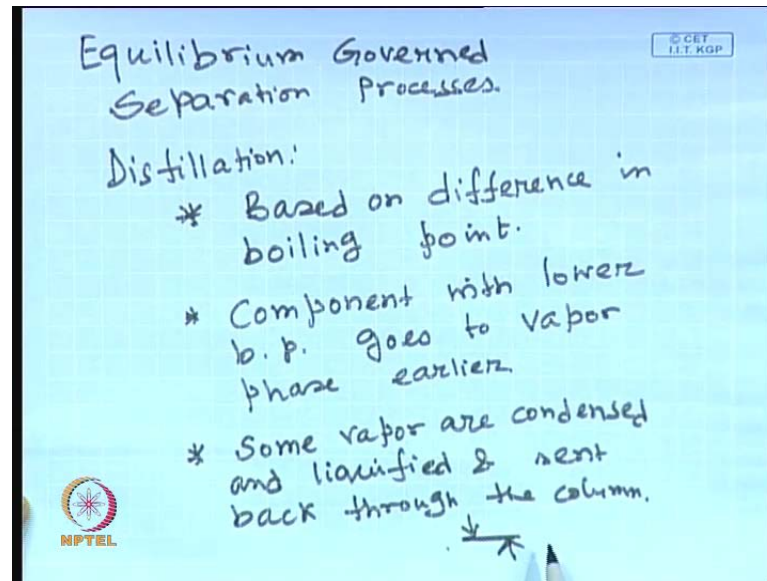 Equilibrium Governed
© CET
I.I.T. KGP
Separation Processes.
Distillation:
* Based on difference in
boiling point.
* Component with lower
b.p. goes to vapor
phase earlier.
* Some vapor are condensed
and liquified & sent
back through the column.
NPTEL